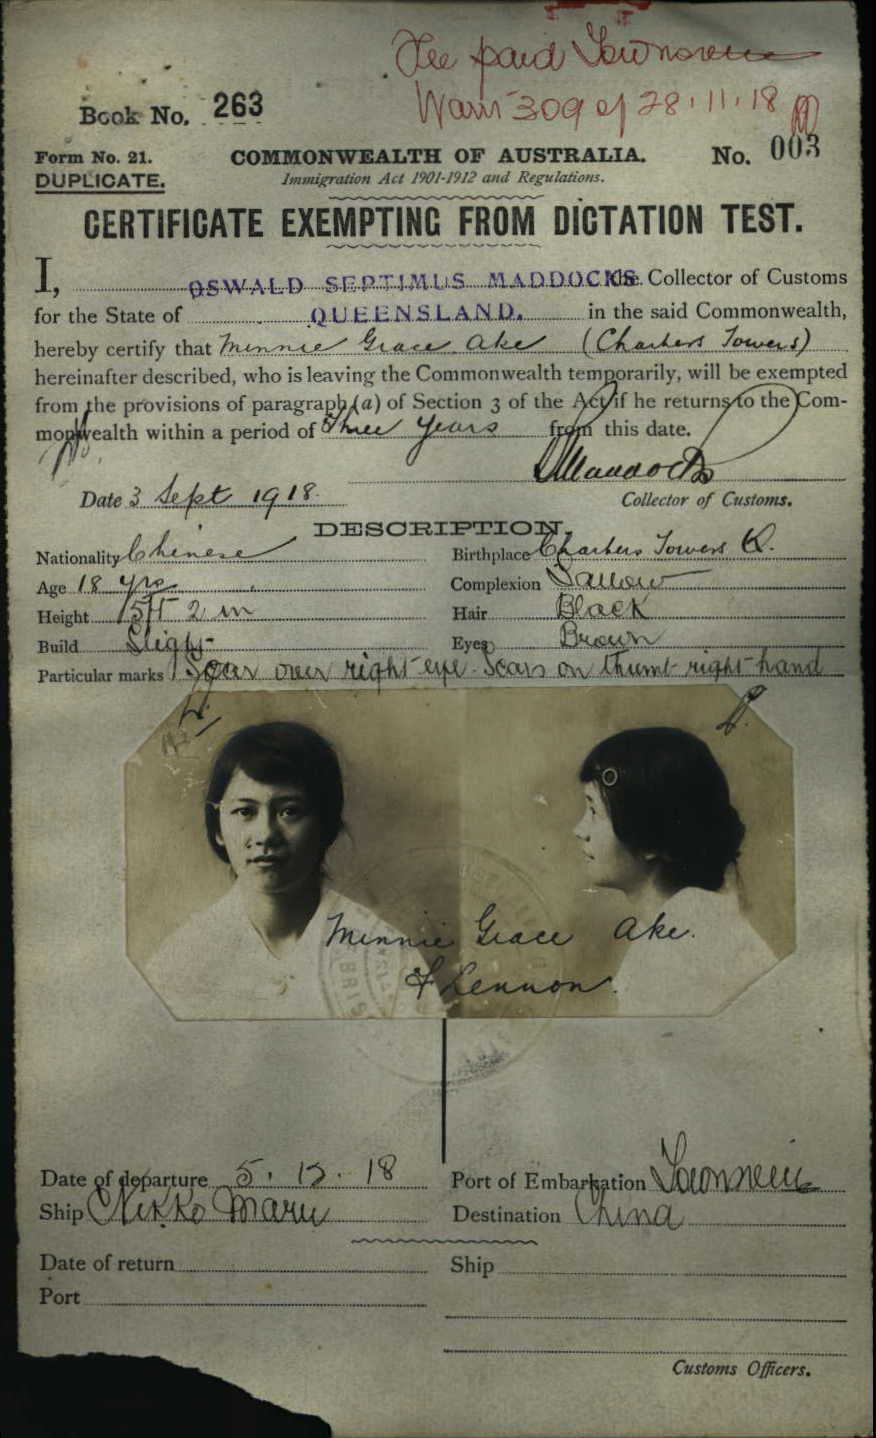 Fee paid Townsville
Warr 309 of 28.11.18
Book No. 263
Form No. 21.
COMMONWEALTH OF AUSTRALIA.
No. 003
DUPLICATE.
Immigration Act 1901-1912 and Regulations.
CERTIFICATE EXEMPTING FROM DICTATION TEST.
I, OSWALD SEPTIMUS MADDOCKS the Collector of Customs
for the State of QUEENSLAND. in the said Commonwealth,
hereby certify that Minnie Grace Ake (Charters Towers)
hereinafter described, who is leaving the Commonwealth temporarily, will be exempted
from the provisions of paragraph (a) of Section 3 of the Act if he returns to the Com-
monwealth within a period of Three Years from this date.
Maddocks
Date 3 Sept 1918.
Collector of Customs.
DESCRIPTION.
Nationality Chinese
Birthplace Charters Towers Q.
Age 18 yrs
Complexion Sallow
Height 5ft 2 in
Hair Black
Build Slight
Eyes Brown
Particular marks Scar over right eye. Scars on thumb right hand
Minnie Grace Ake.
Lennon.
Date of departure 5.12.18
Port of Embarkation Townsville
Ship Nikko Maru
Destination China
Date of return
Ship
Port
Customs Officers.